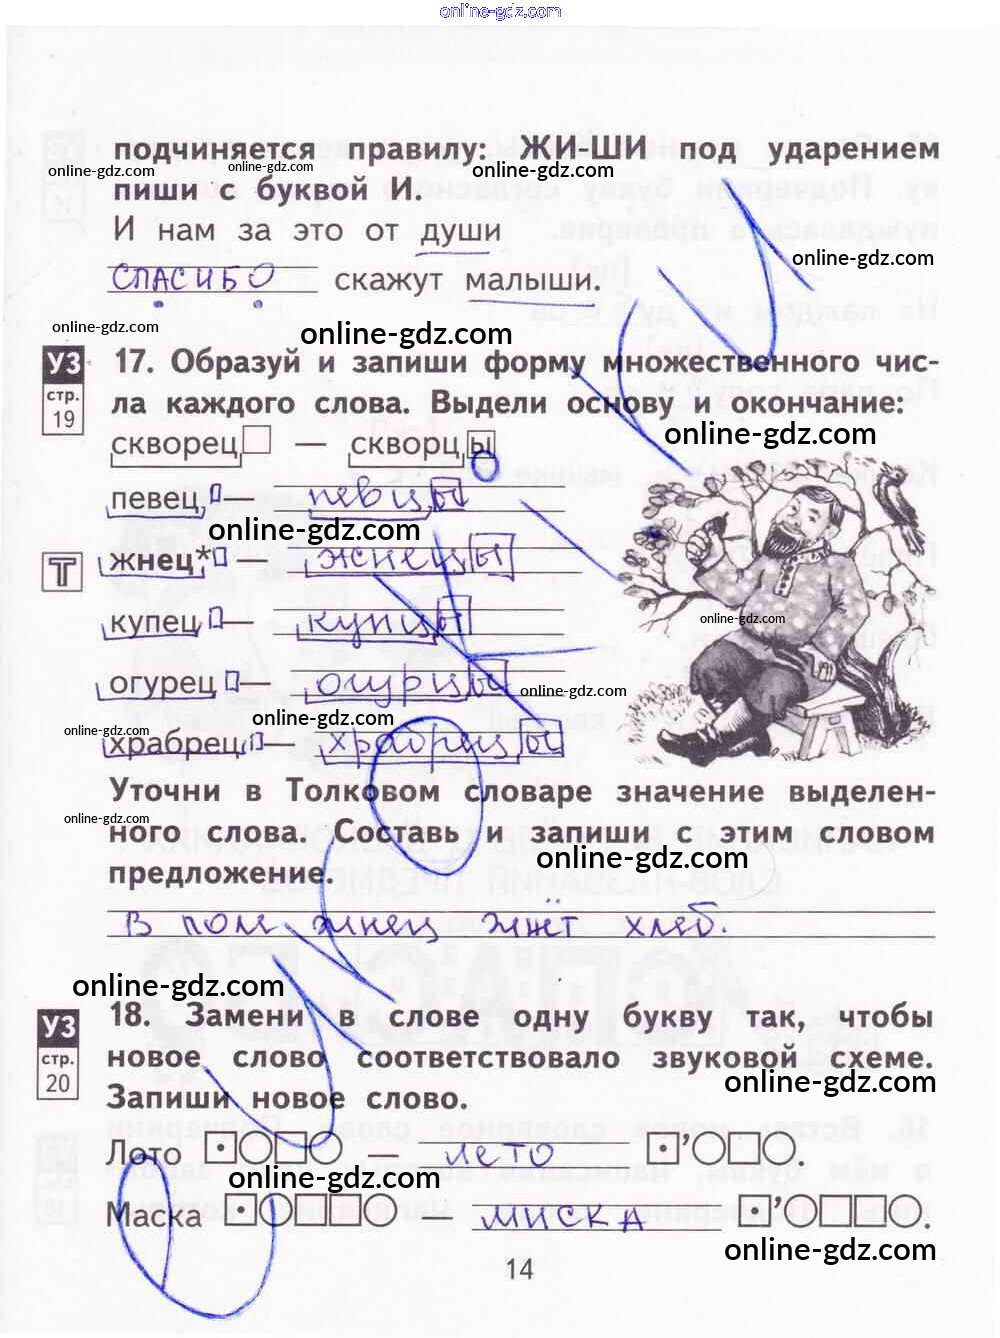 online-gdz.com
подчиняется правилу: ЖИ-ШИ под ударением
online-gdz.com online-gdz.com online-gdz.com
пиши с буквой И.
И нам за это от души
online-gdz.com
СПАСИБО скажут малыши.
online-gdz.com online-gdz.com
УЗ стр. 19
17. Образуй и запиши форму множественного чис-
ла каждого слова. Выдели основу и окончание:
online-gdz.com
скворец — скворцы
певец — певцы
online-gdz.com
Т
жнец* — жнецы
online-gdz.com
купец — купцы
огурец — огурцы
online-gdz.com
online-gdz.com online-gdz.com
храбрец — храбрецы
Уточни в Толковом словаре значение выделен-
online-gdz.com
ного слова. Составь и запиши с этим словом
online-gdz.com
предложение.
В поле жнец жнёт хлеб.
online-gdz.com
УЗ стр. 20
18. Замени в слове одну букву так, чтобы
новое слово соответствовало звуковой схеме.
online-gdz.com
Запиши новое слово.
Лото — лето
online-gdz.com
Маска — миска
online-gdz.com
14